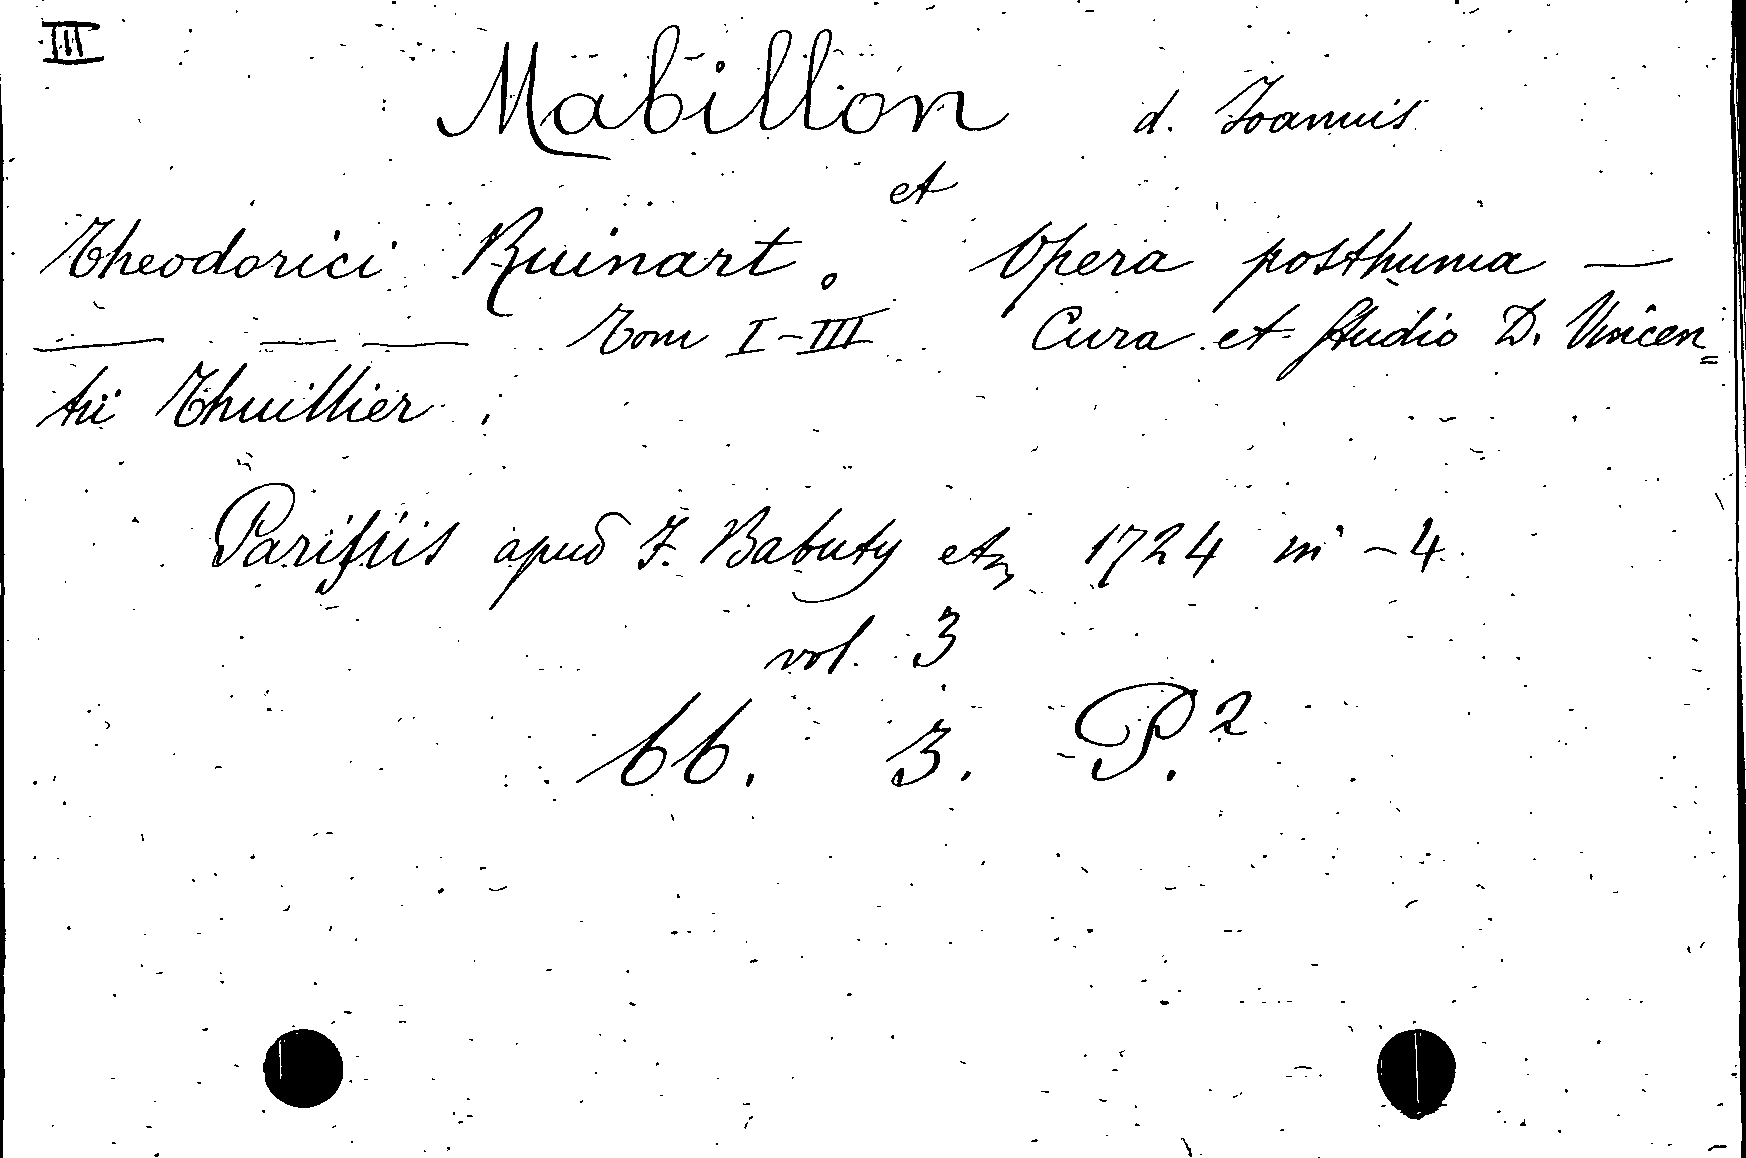 III
Mabillon d. Joannis
et
Theodorici Ruinart. Opera posthuma —
— — — Tom I-III Cura et Studio D. Vincen=
tii Thuillier.
Parisiis apud F. Babuty etc 1724 in -4.
vol. 3
bb. 3. P.²